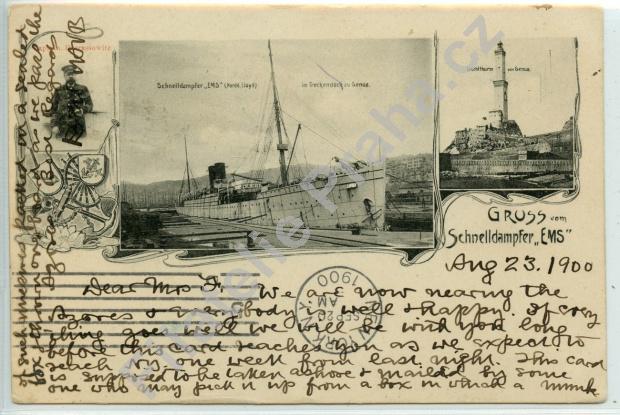 Schnelldampfer „EMS" (Nordd. Lloyd)
im Trockendock zu Genua.
Leuchtthurm von Genua.
GRUSS vom
SCHNELLDAMPFER „EMS"
Aug 23. 1900
Dear Mrs F. We are now nearing the
Azores & everybody is well & happy. If every
thing goes well we will be with you long
before this card reaches you as we expect to
reach N.Y. one week from last night. This card
is supposed to be taken ashore & mailed by some
one who may pick it up from a box in which a
of such missives packed in a sealed
box & thrown overboard as we pass the
Azores
1900
AM
philatelie Praha.cz